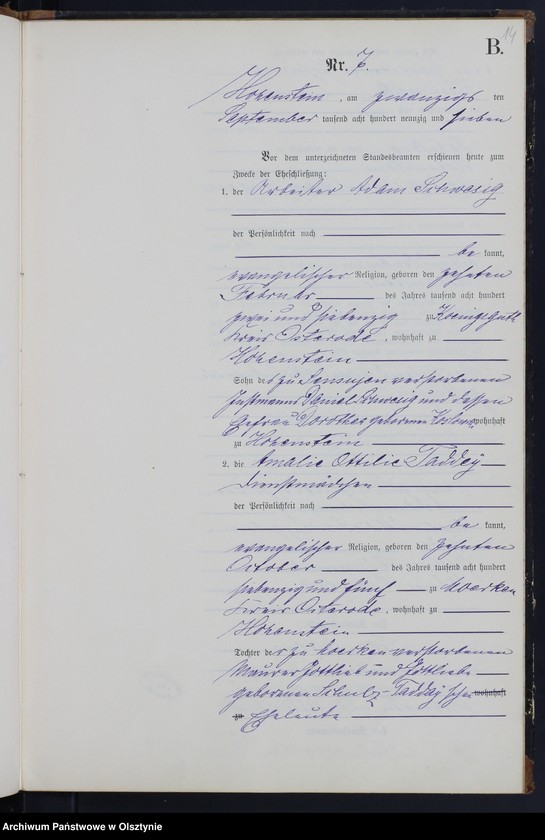 14
B.
Nr. 7.
Hohenstein, am zwanzigsten
September tausend acht hundert neunzig und sieben
Vor dem unterzeichneten Standesbeamten erschienen heute zum
Zwecke der Eheschließung:
1. der Arbeiter Adam Schwesig
der Persönlichkeit nach
be kannt,
evangelischer Religion, geboren den zehnten
Februar des Jahres tausend acht hundert
zwei und siebenzig zu Koenigsgut
Kreis Osterode, wohnhaft zu
Hohenstein
Sohn des zu verstorbenen
Instmanns Daniel Schwesig und dessen
Ehefrau Dorothea geborenen wohnhaft
zu Hohenstein
2. die Amalie Ottilie Taddey
Dienstmädchen
der Persönlichkeit nach
be kannt,
evangelischer Religion, geboren den zehnten
October des Jahres tausend acht hundert
siebenzig und fünf zu Moerken
Kreis Osterode, wohnhaft zu
Hohenstein
Tochter der zu Moerken verstorbenen
Maurer Gottlieb und Gottliebe
geborenen Schulz-Taddey'schen wohnhaft
zu Eheleute
Archiwum Państwowe w Olsztynie